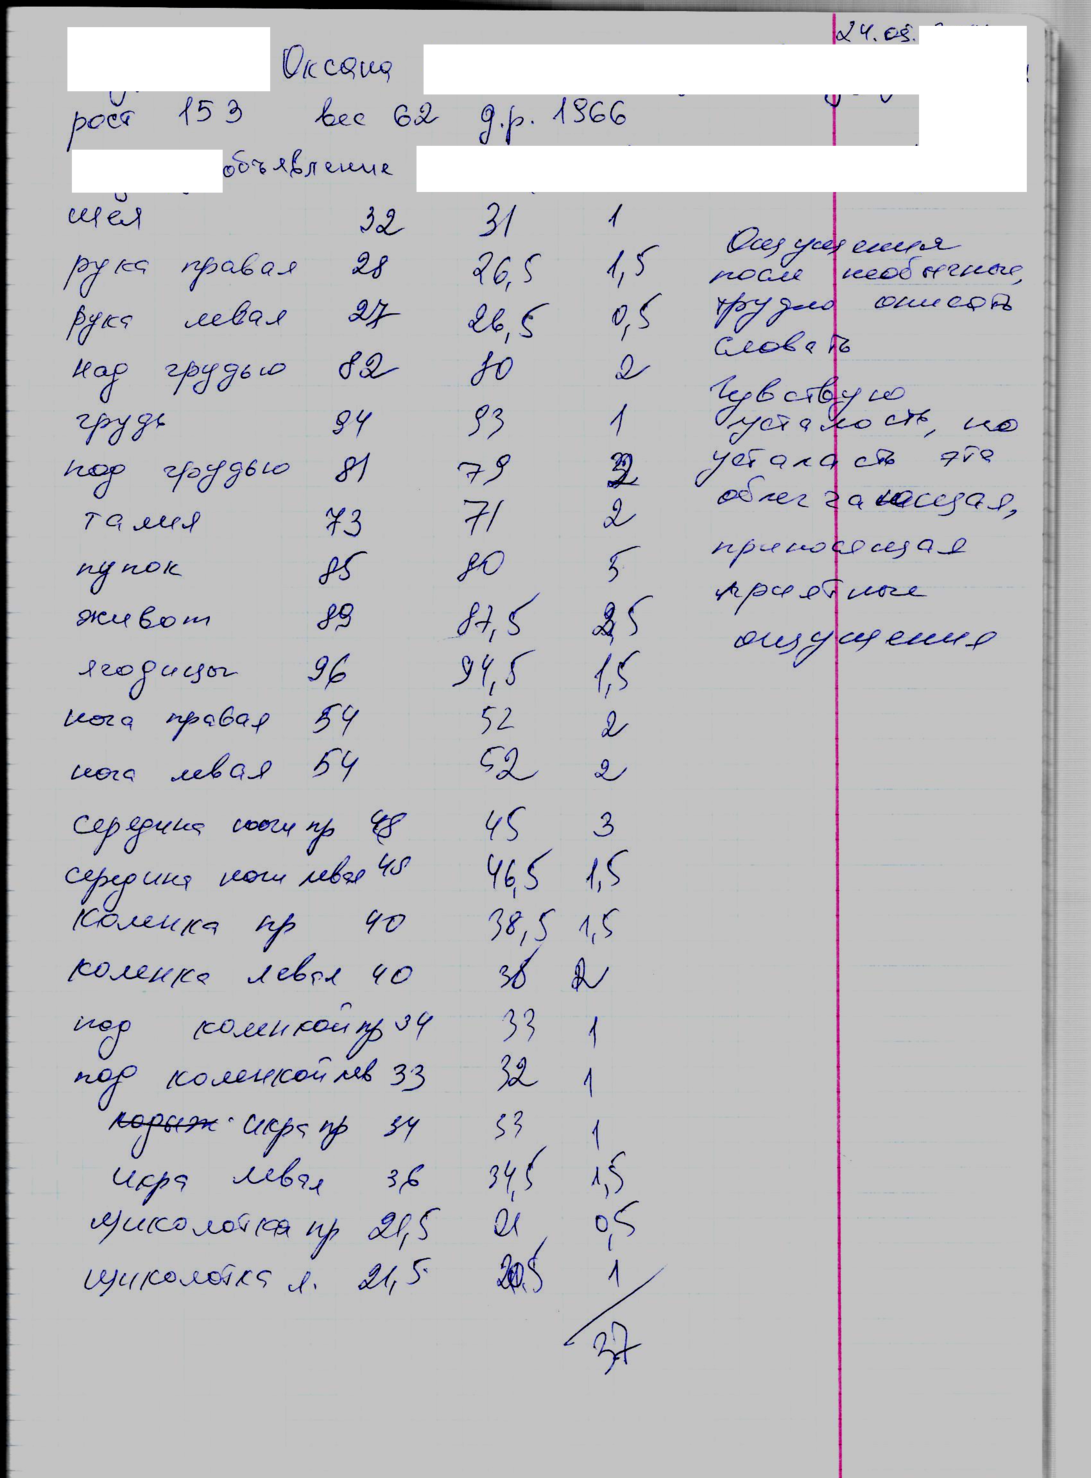 24.09.
Оксана
рост 153 вес 62 д.р. 1966
объявление
шея 32 31 1
рука правая 28 26,5 1,5
рука левая 27 26,5 0,5
над грудью 82 80 2
грудь 94 93 1
под грудью 81 79 2
талия 73 71 2
пупок 85 80 5
живот 89 87,5 2,5
ягодицы 96 94,5 1,5
нога правая 54 52 2
нога левая 54 52 2
середина ноги пр 48 45 3
середина ноги левая 48 46,5 1,5
коленка пр 40 38,5 1,5
коленка левая 40 38 2
под коленкой пр 34 33 1
под коленкой лев 33 32 1
икра пр 34 33 1
икра левая 36 34,5 1,5
щиколотка пр 21,5 21 0,5
щиколотка л. 21,5 20,5 1
37
Ощущения
после необычные,
трудно описать
словать
Чувствую
усталость, но
усталасть эта
облегчающая,
приносящая
приятные
ощущения